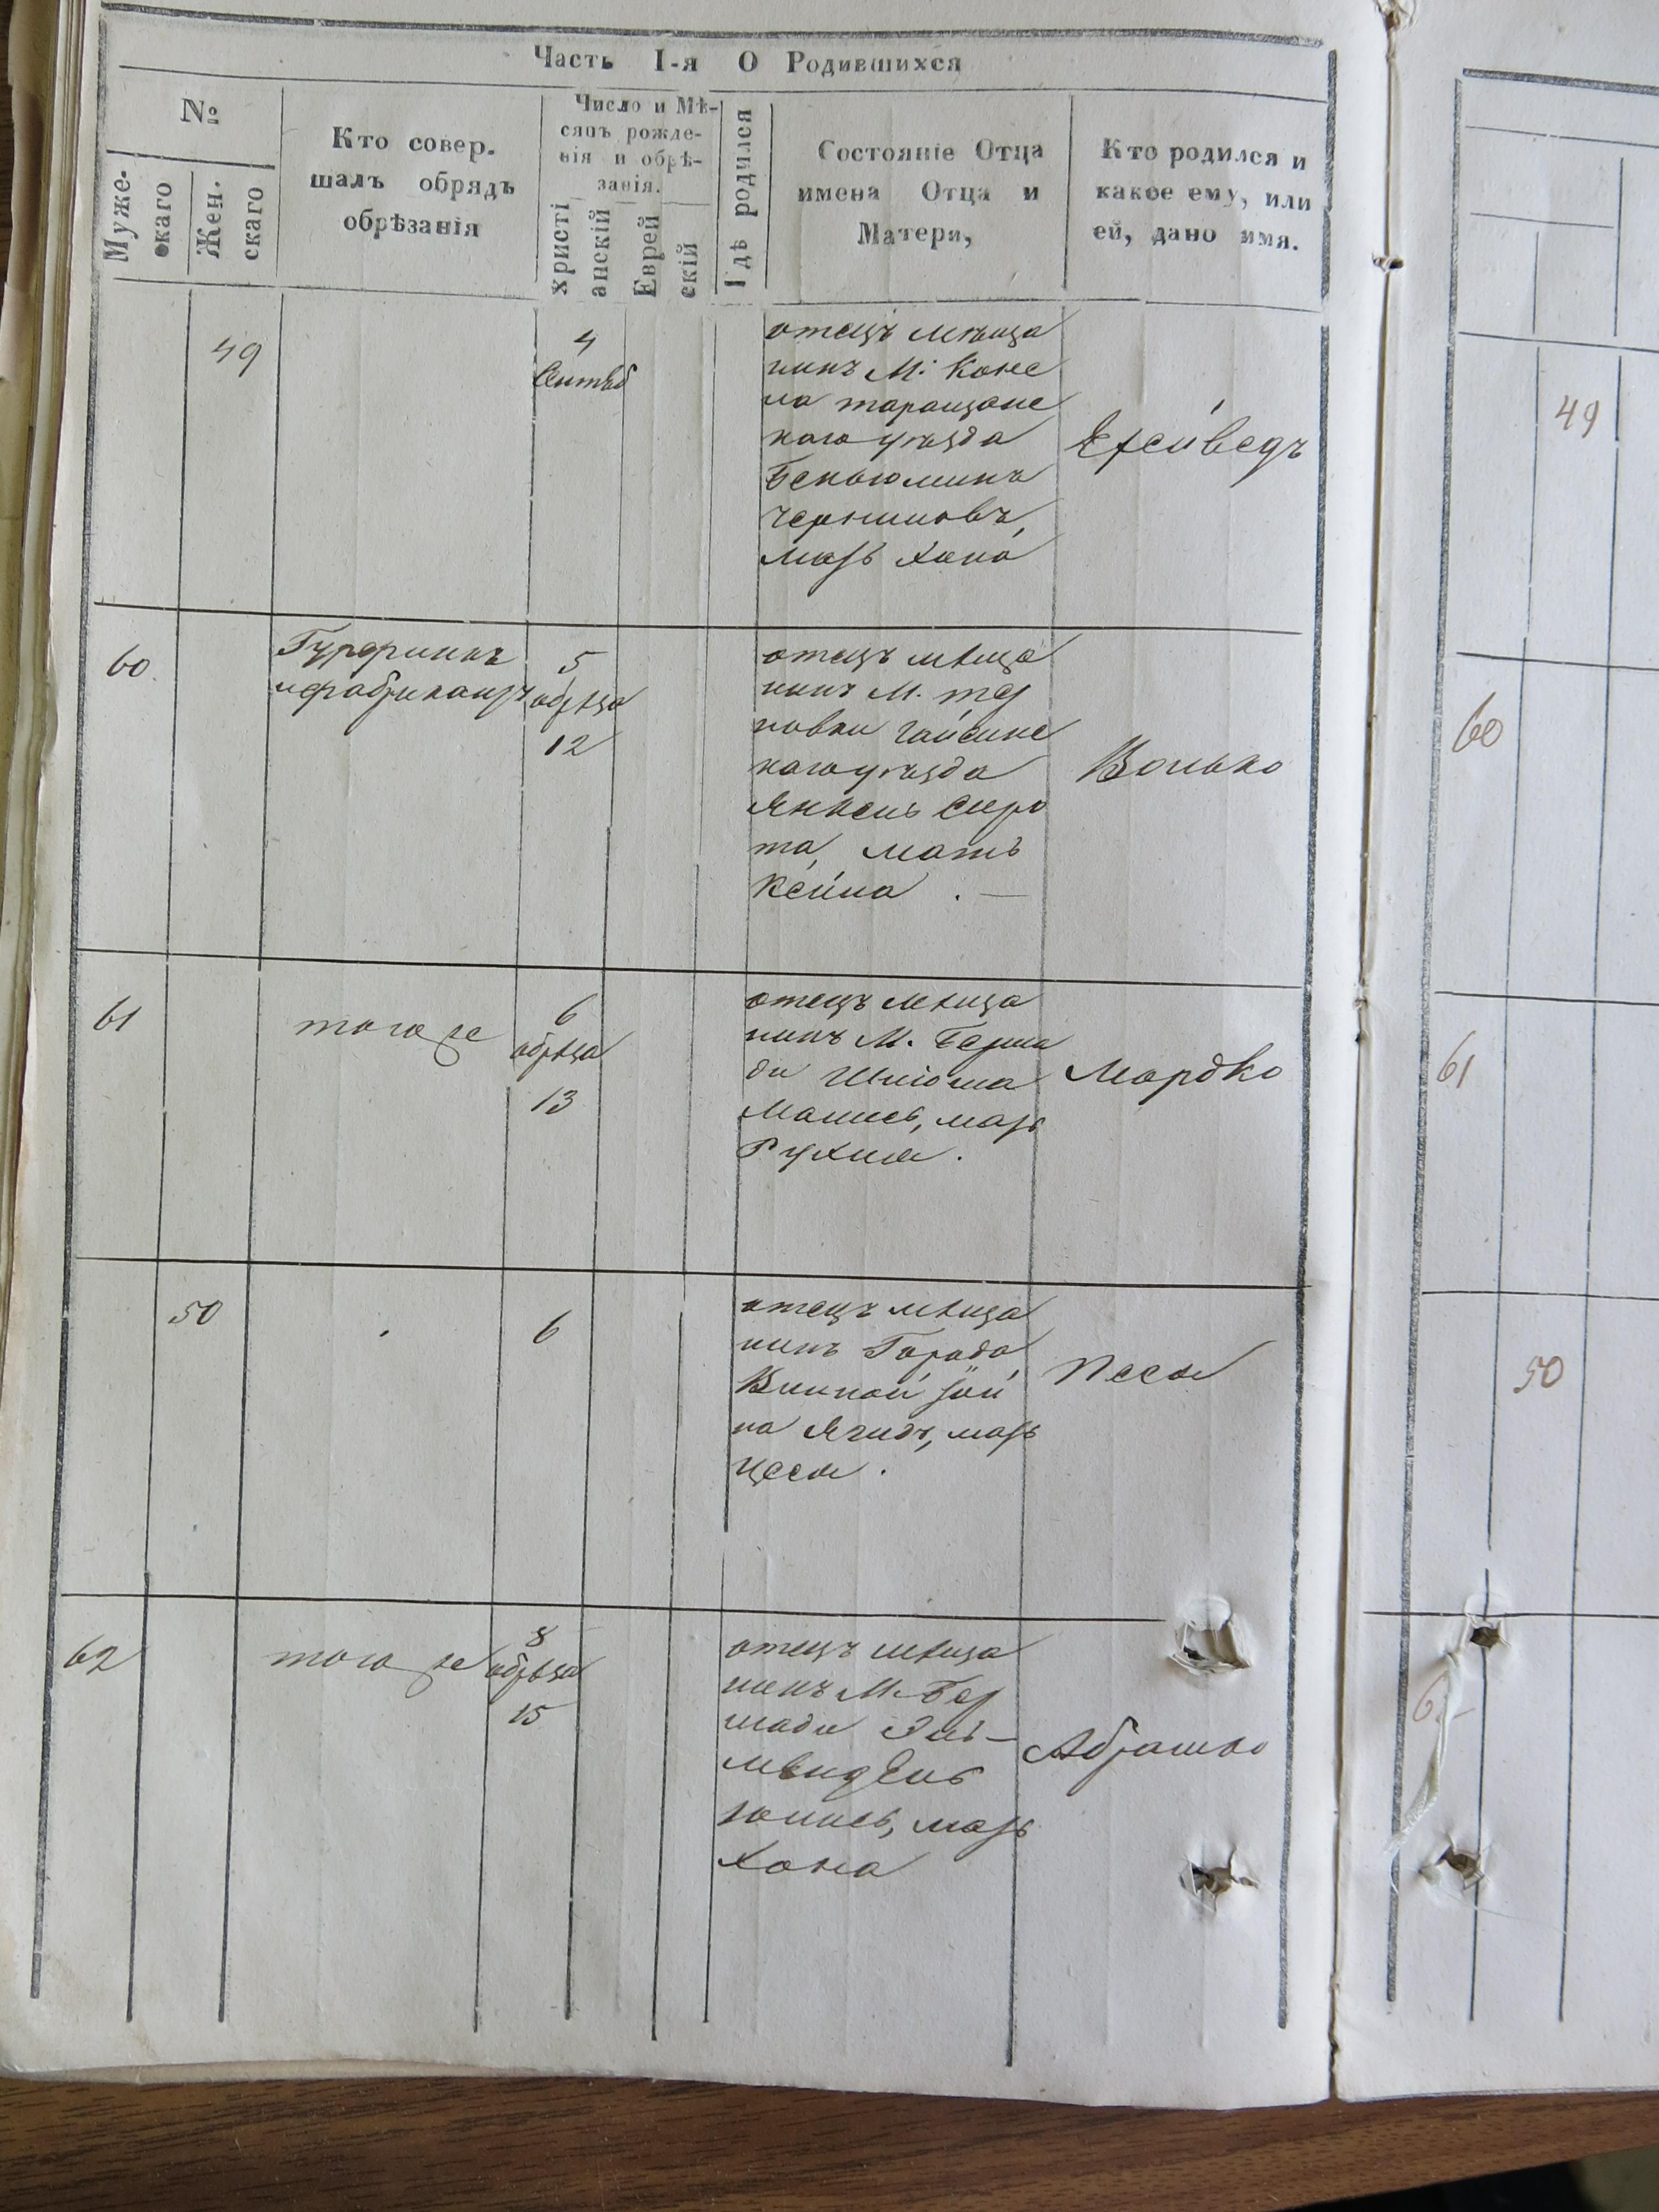 Часть I-я О Родившихся
№
Муже-
скаго
Жен.
скаго
Кто совер-
шалъ обрядъ
обрѣзанія
Число и Мѣ-
сяцъ рожде-
нія и обрѣ-
занія.
христі
анскій
Еврей
скій
Гдѣ родился
Состояніе Отца
имена Отца и
Матери,
Кто родился и
какое ему, или
ей, дано имя.
49
4
Сентяб
отецъ мѣща
нинъ М. Коне
ла таращанс
кого уѣзда
Беньюминъ
Черниновъ,
мать Хана
Ейсиведъ
49
60
5
обрѣза
12
отецъ мѣща
нинъ М. тер
новки гайсинс
кого уѣзда
Янкель Сиро
та, мать
Кейла . —
Волько
60
61
того же
6
обрѣза
13
отецъ мѣща
нинъ М. Берша
ди Шлиома
Манисъ, мать
Рухля .
Мордко
61
50
6
отецъ мѣща
нинъ Города
на Ягидъ, мать
Цеся .
Песя
50
62
того же
8
обрѣза
15
отецъ мѣща
нинъ М. Бер
шади
мать
Хана
Абрашко